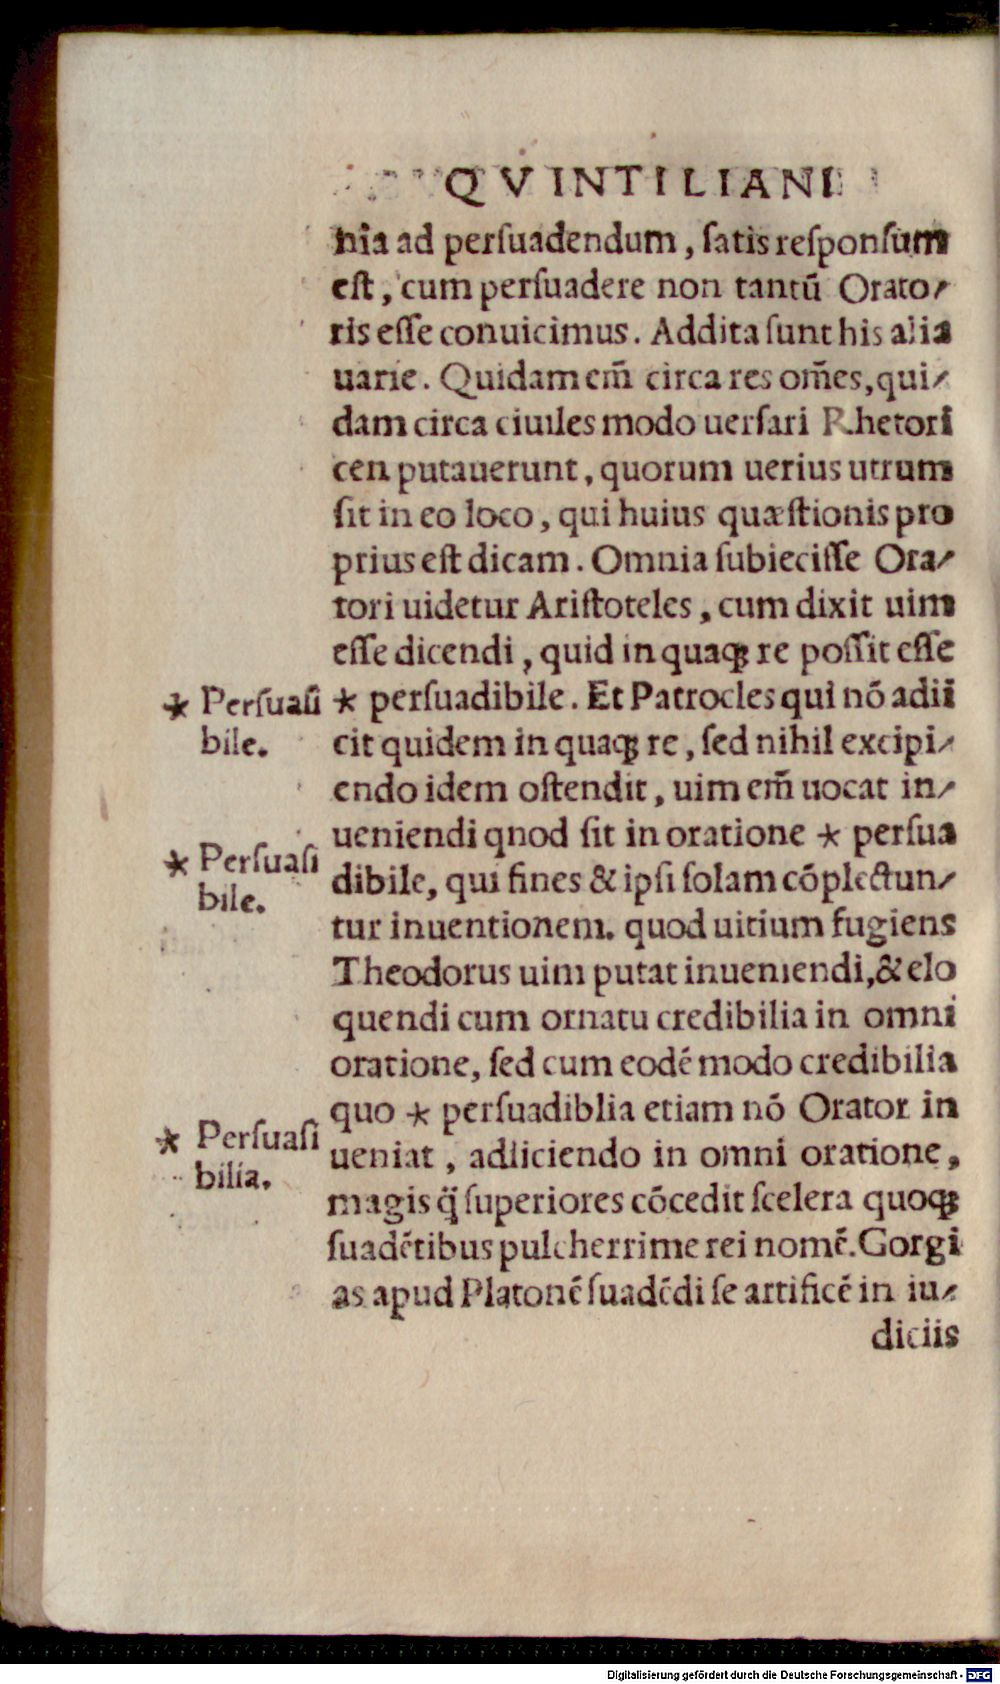 QVINTILIANI
nia ad perſuadendum, ſatis reſponſum
eſt, cum perſuadere non tantū Orato-
ris eſſe conuicimus. Addita ſunt his alia
uarie. Quidam em̄ circa res om̄es, qui-
dam circa ciuiles modo uerſari Rhetori
cen putauerunt, quorum uerius utrum
ſit in eo loco, qui huius quæſtionis pro
prius eſt dicam. Omnia ſubieciſſe Ora-
tori uidetur Ariſtoteles, cum dixit uim
eſſe dicendi, quid in quaqꝫ re poſſit eſſe
* Perſuaſi
bile.
* perſuadibile. Et Patrocles qui nō adii
cit quidem in quaqꝫ re, ſed nihil excipi-
endo idem oſtendit, uim em̄ uocat in-
ueniendi qnod ſit in oratione * perſua
* Perſuaſi
bile.
dibile, qui fines & ipſi ſolam cōplectun-
tur inuentionem. quod uitium fugiens
Theodorus uim putat inueniendi, & elo
quendi cum ornatu credibilia in omni
oratione, ſed cum eodē modo credibilia
quo * perſuadiblia etiam nō Orator in
* Perſuaſi
bilia.
ueniat, adiiciendo in omni oratione,
magis q̄ ſuperiores cōcedit ſcelera quoqꝫ
ſuadētibus pulcherrime rei nomē. Gorgi
as apud Platonē ſuadēdi ſe artificē in iu-
diciis
Digitalisierung gefördert durch die Deutsche Forschungsgemeinschaft - DFG